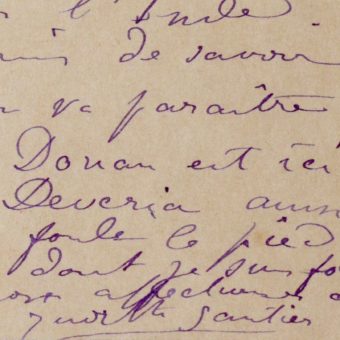 de savoir
va paraître
Donan est ici
Deveria aussi
foule le pied
dont je suis
affectueuse
Judith Gautier